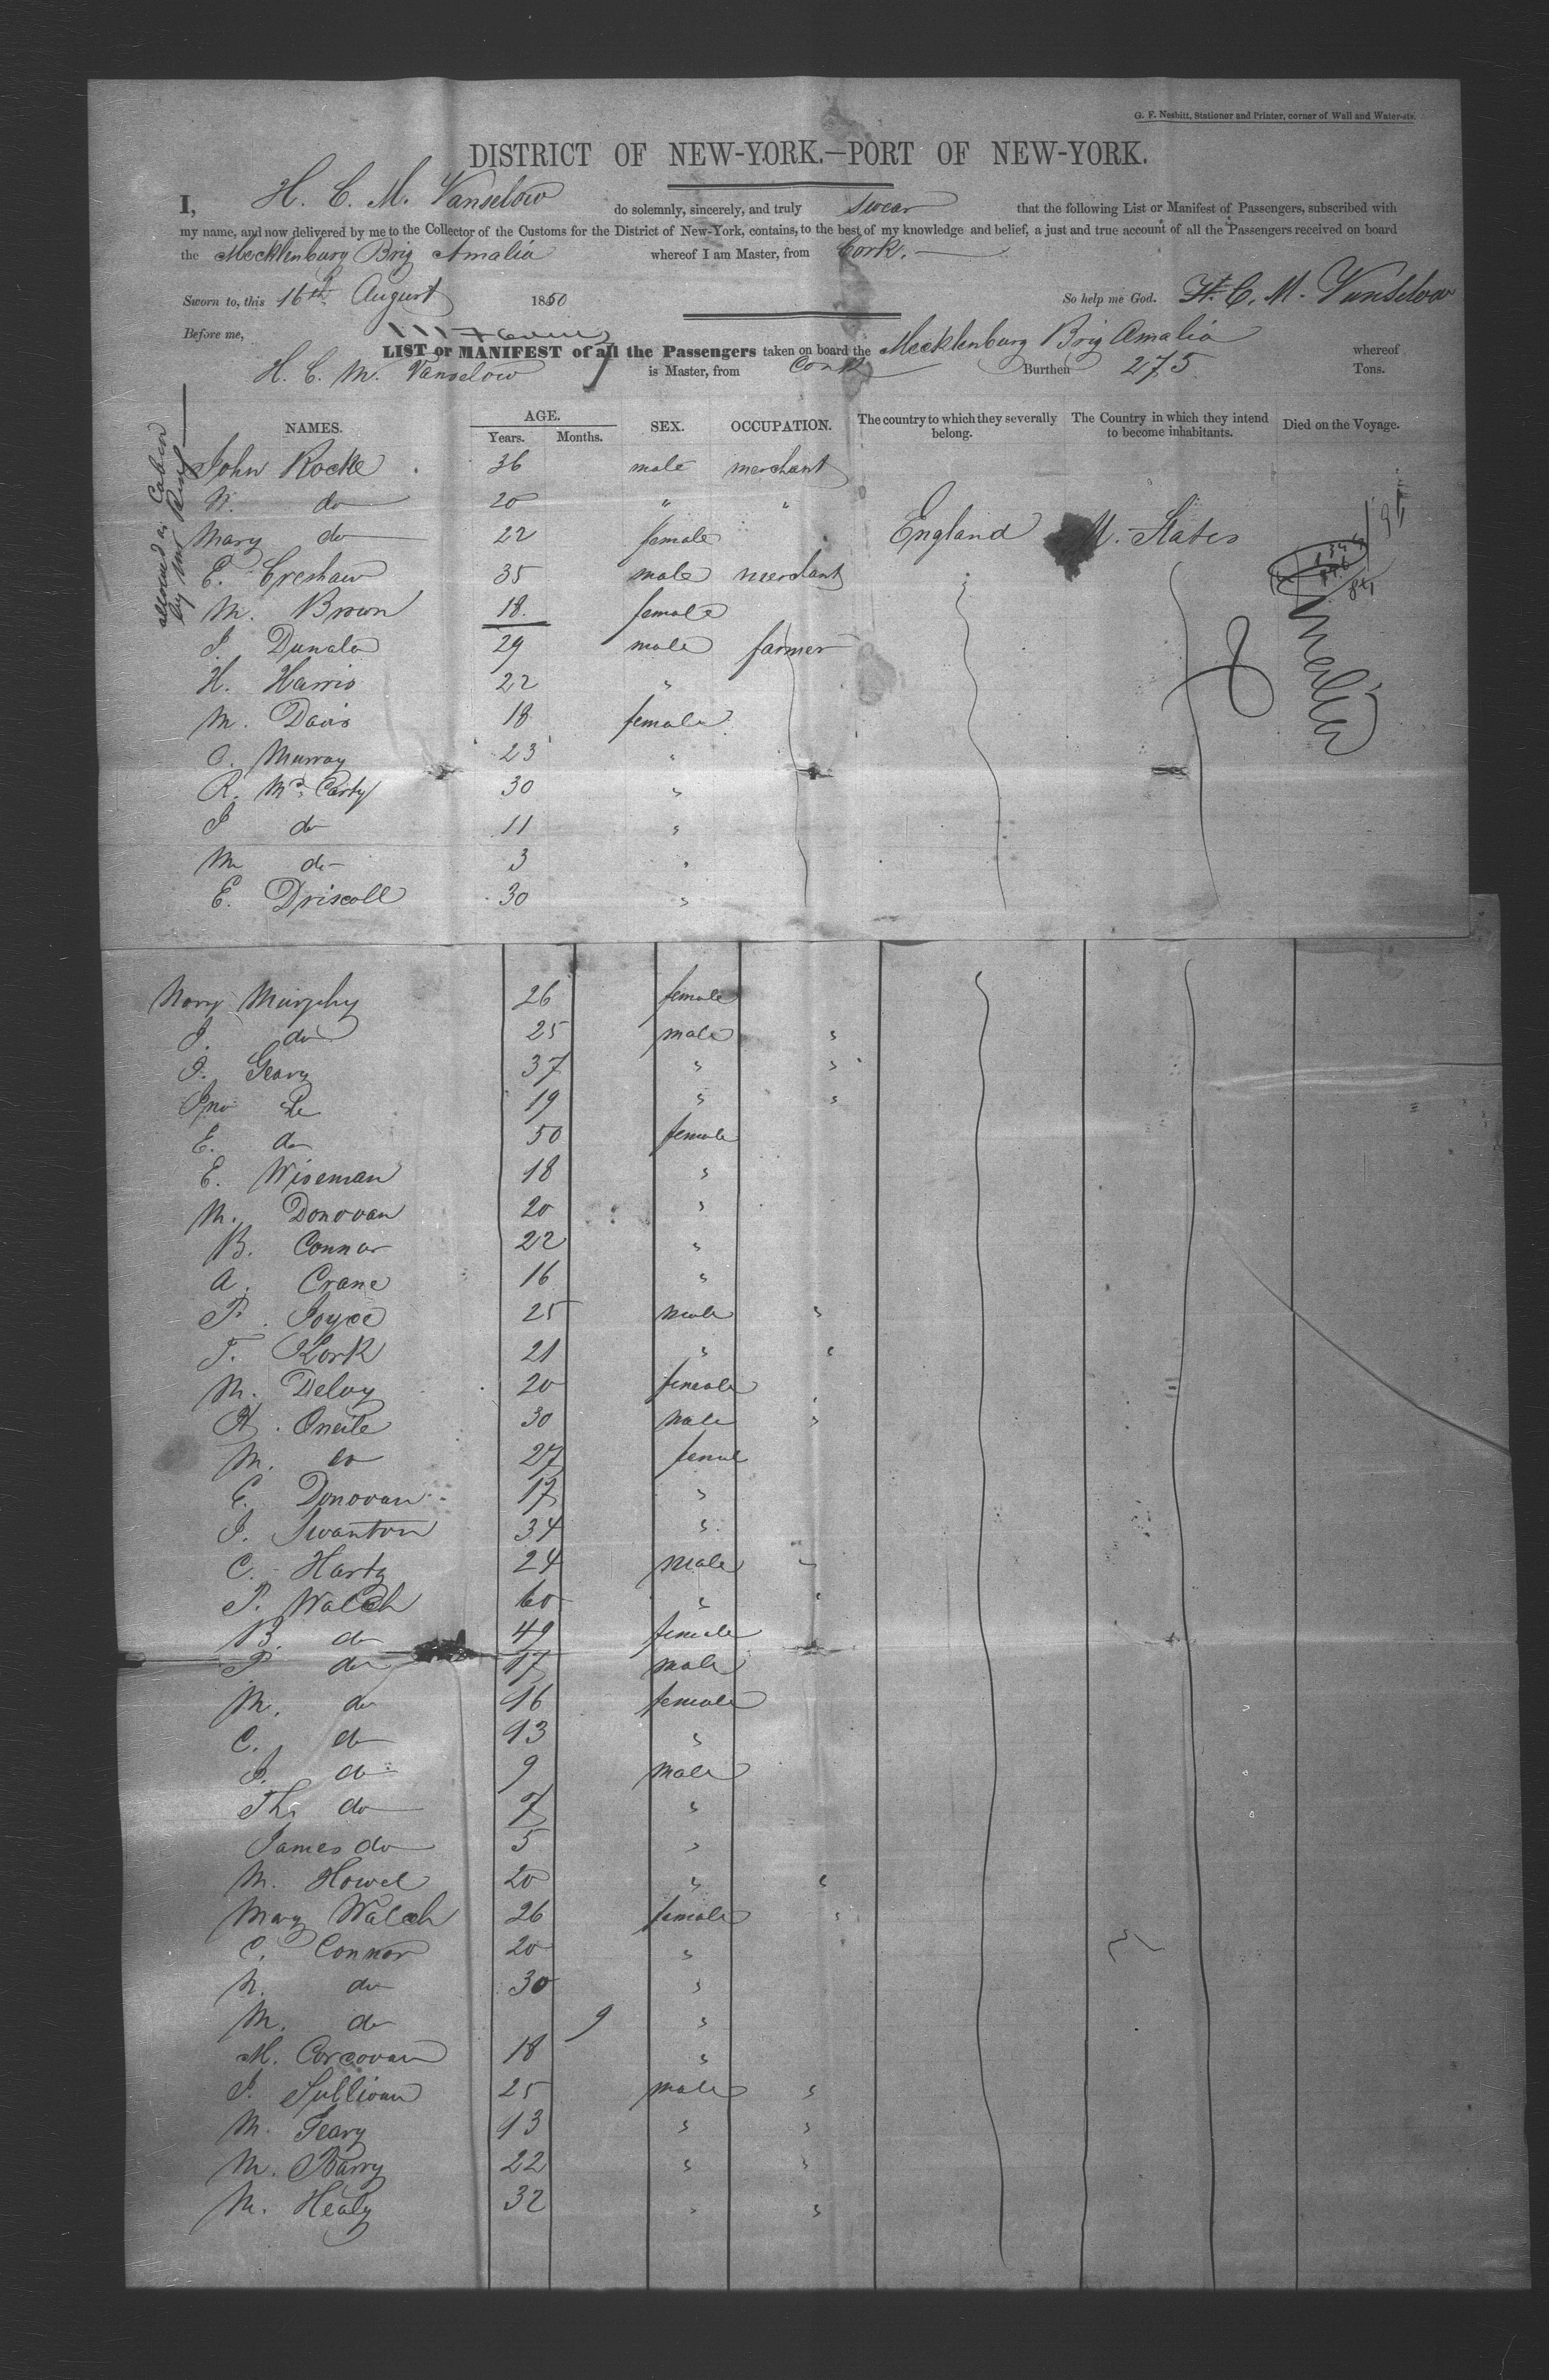 G. F. Nesbitt, Stationer and Printer, corner of Wall and Water-sts.
DISTRICT OF NEW-YORK.—PORT OF NEW-YORK.
I, H. C. M. Vanselow do solemnly, sincerely, and truly swear that the following List or Manifest of Passengers, subscribed with
my name, and now delivered by me to the Collector of the Customs for the District of New-York, contains, to the best of my knowledge and belief, a just and true account of all the Passengers received on board
the Mecklenburg Brig Amalia whereof I am Master, from Cork.
Sworn to, this 16th August 1850 So help me God. H. C. M. Vanselow
Before me,
LIST or MANIFEST of all the Passengers taken on board the Mecklenburg Brig Amalia whereof
H. C. M. Vanselow is Master, from Cork Burthen 275 Tons.
NAMES. AGE. Years. Months. SEX. OCCUPATION. The country to which they severally belong. The Country in which they intend to become inhabitants. Died on the Voyage.
John Rocke 36 male merchant
N. do 20 " "
Mary do 22 female England U. States
E. Creshaw 35 male merchant
M. Brown 18. female
J. 29 male farmer
H. Harris 22 "
M. Davis 18 female
C. Murray 23 "
R. McCarty 30 "
J do 11 "
M do 3 "
E. Driscoll 30 "
Amalia
Mary Murphy 26 female
J. do 25 male "
J. Geary 37 " "
Jno do 19 " "
E. do 50 female
E. Wiseman 18 "
M. Donovan 20 "
B. Connor 22 "
A. Crane 16 "
P. Joyce 25 male "
T. 21 " "
M. Deloy 20 female
H. Oneile 30 male "
M. do 27 female
C. Donovan 17 "
J. Swanton 34 "
C. Harty 24 male "
P. Walch 60 " "
B. do 49 female
P. do 17 male
M. do 16 female
C. do 13 "
J. do 9 male
Th. do 7 "
James do 5 "
M. Howel 20 " "
Mary Walch 26 female "
C. Connor 20 "
N. do 30 "
M. do 9 "
M. Corcovan 18 "
J. Sullivan 25 male "
M. Geary 13 " "
M. Barry 22 " "
M. Healy 32 " "